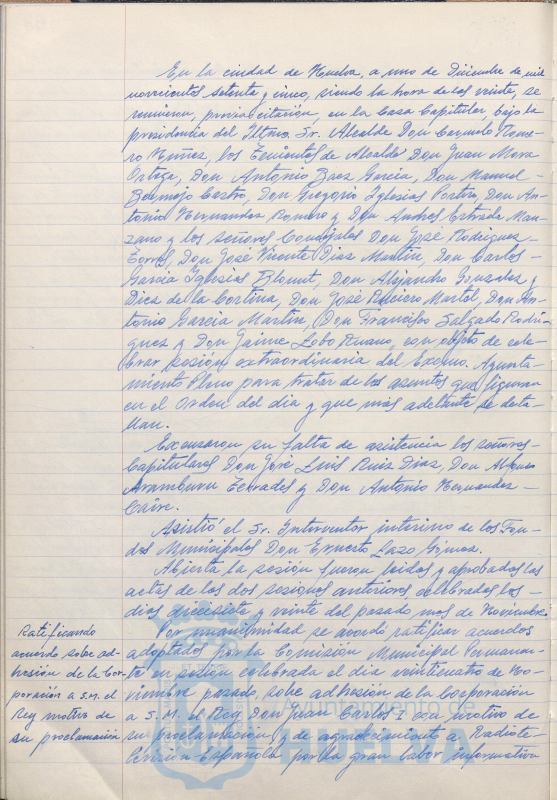 En la ciudad de Huelva, a uno de Diciembre de mil
novecientos setenta y cinco, siendo la hora de las veinte, se
reunieron, previa citación, en la Casa Capitular, bajo la
presidencia del Iltmo. Sr. Alcalde Don Carmelo Rome-
ro Núñez, los Tenientes de Alcalde Don Juan Mora
Ortega, Don Antonio Baez Garcia, Don Manuel
Bermejo Castro, Don Gregorio Iglesias Don An-
tonio Hernandez Romero y Don Andres Estrada Man-
zano y los señores Concejales Don José Rodriguez
Torres, Don José Vicente Diaz Martin, Don Carlos
Garcia Iglesias Don Alejandro Gonzalez y
Diez de la Cortina, Don José Martel, Don An-
tonio Garcia Martin, Don Francisco Salgado Rodri-
guez y Don Jaime Lobo Ruano, con objeto de cele-
brar sesión extraordinaria del Excmo. Ayunta-
miento Pleno para tratar de los asuntos que figuran
en el Orden del dia y que más adelante se deta-
llan.
Excusaron su falta de asistencia los señores
Capitulares Don José Luis Ruiz Diaz, Don Alfonso
Aramburu Terrades y Don Antonio Hernandez
Asistió el Sr. Interventor interino de los Fon-
dos Municipales Don Ernesto Lazo Gómez.
Abierta la sesión fueron leidas y aprobadas las
actas de las dos sesiones anteriores celebradas los
dias diecisiete y veinte del pasado mes de Noviembre.
Ratificando
acuerdo sobre ad-
hesión de la Cor-
poración a S.M. el
Rey motivo de
su proclamación
Por unanimidad se acordó ratificar acuerdos
adoptados por la Comisión Municipal Permanen-
te en sesión celebrada el dia veinticuatro de No-
viembre pasado, sobre adhesión de la Corporación
a S.M. el Rey Don Juan Carlos I con motivo de
su proclamación y de agradecimiento a Radiote-
levisión Española por la gran labor informativa
Ayuntamiento de
HUELVA